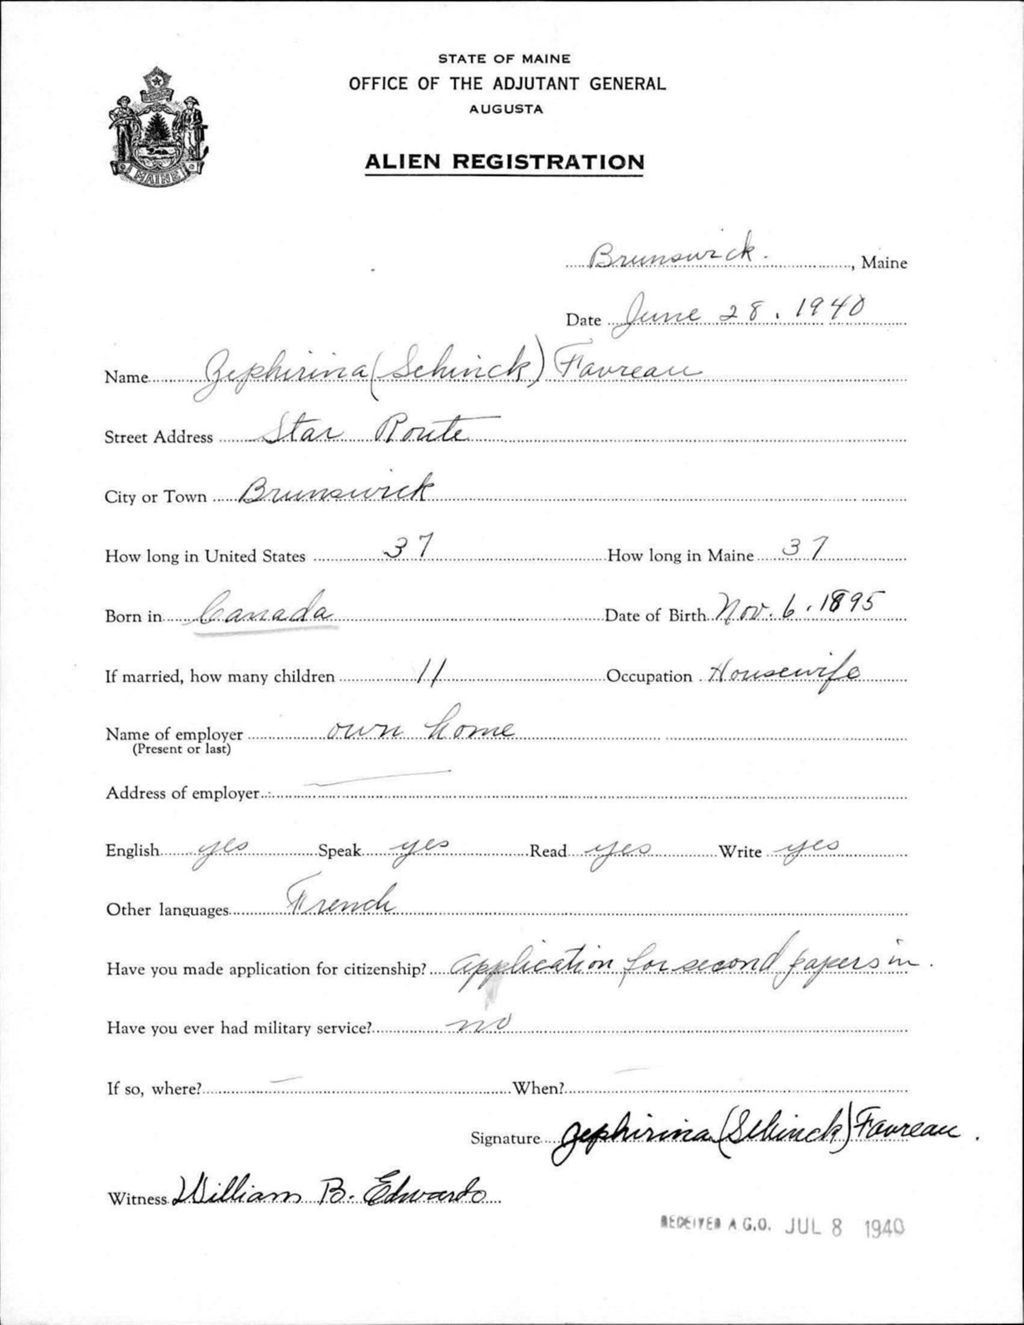 STATE OF MAINE
OFFICE OF THE ADJUTANT GENERAL
AUGUSTA
ALIEN REGISTRATION
MAINE
Brunswick. , Maine
Date June 28, 1940
Name Zephirina (Schinck) Favreau
Street Address Star Route
City or Town Brunswick
How long in United States 37 How long in Maine 37
Born in Canada Date of Birth Nov. 6, 1895
If married, how many children 11 Occupation Housewife
Name of employer own home
(Present or last)
Address of employer
English yes Speak yes Read yes Write yes
Other languages French
Have you made application for citizenship? application for second papers in.
Have you ever had military service? no
If so, where? — When? —
Signature Zephirina (Schinck) Favreau.
Witness William B. Edwards
RECEIVED A.G.O. JUL 8 1940